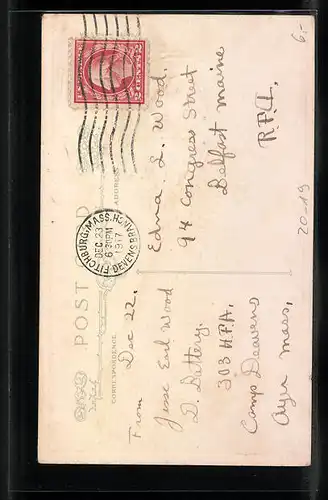 POST CARD
CORRESPONDENCE
ADDRESS
2 CENTS 2
FITCHBURG, MASS.
DEC 23
6:30 PM
1917
DEVENS BRANCH
Dec 22.
From
Jesse Earl Wood
D. Battery.
303 H.F.A.
Camp Deavens
Ayer Mass,
Edna L. Wood.
94 Congress Street
Belfast Maine
R.F.D.
2019
6,-